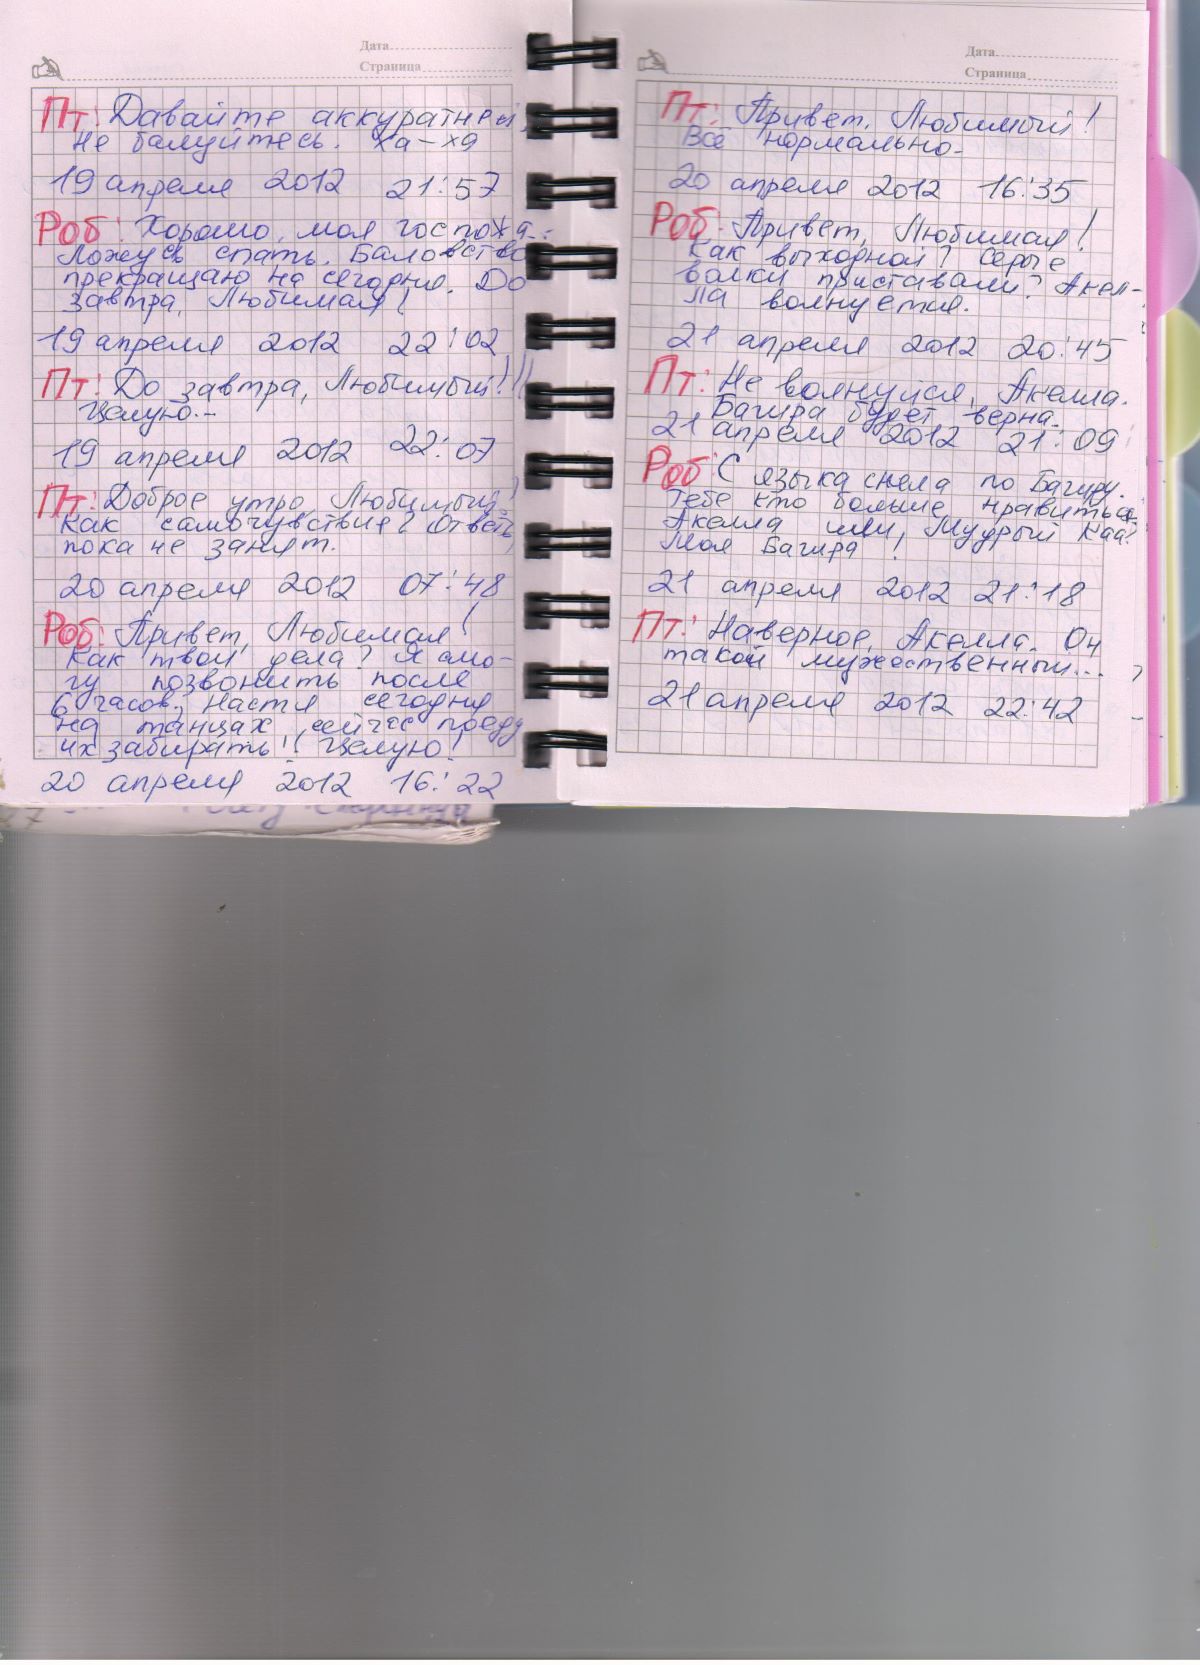 Дата
Страница
Пт: Давайте аккуратней,
Не балуйтесь. Ха-ха
19 апреля 2012 21:57
Роб: Хорошо, моя госпожа.
Ложусь спать. Баловство
прекращаю на сегодня. До
завтра, Любимая!
19 апреля 2012 22:02
Пт: До завтра, Любимый!!!
Целую.-
19 апреля 2012 22:07
Пт: Доброе утро, Любимый!
Как самочувствие? Ответь,
пока не занят.
20 апреля 2012 07:48
Роб: Привет, Любимая!
Как твои дела? Я смо-
гу позвонить после
6 часов. Настя сегодня
на танцах, сейчас поеду
их забирать! Целую!
20 апреля 2012 16:22
Дата
Страница
Пт: Привет, Любимый!
Всё нормально.
20 апреля 2012 16:35
Роб: Привет, Любимая!
Как выходной? Серые
волки приставали? Акел-
ла волнуется.
21 апреля 2012 20:45
Пт: Не волнуйся, Акелла.
Багира будет верна.
21 апреля 2012 21:09
Роб: С языка сняла по Багиру.
Тебе кто больше нравиться
Акелла или Мудрый Каа?
Моя Багира!
21 апреля 2012 21:18
Пт: Наверное, Акелла. Он
такой мужественный...
21 апреля 2012 22:42